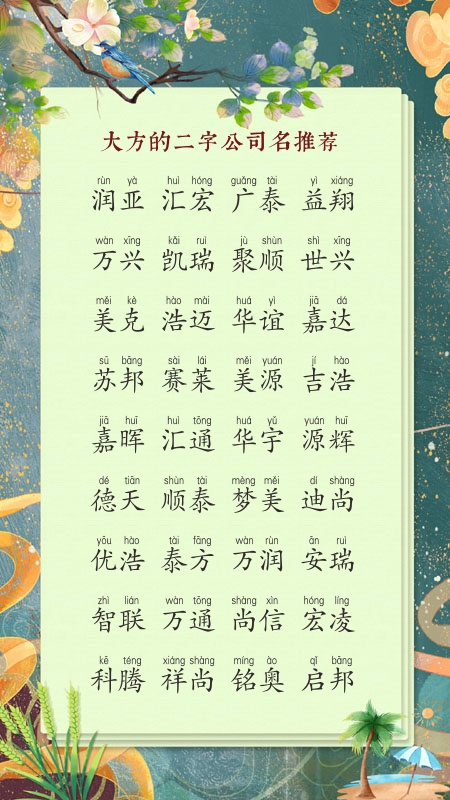 大方的二字公司名推荐
rùn yà huì hóng guǎng tài yì xiáng
润亚 汇宏 广泰 益翔
wàn xīng kǎi ruì jù shùn shì xīng
万兴 凯瑞 聚顺 世兴
měi kè hào mài huá yì jiā dá
美克 浩迈 华谊 嘉达
sū bāng sài lái měi yuán jí hào
苏邦 赛莱 美源 吉浩
jiā huī huì tōng huá yǔ yuán huī
嘉晖 汇通 华宇 源辉
dé tiān shùn tài mèng měi dí shàng
德天 顺泰 梦美 迪尚
yōu hào tài fāng wàn rùn ān ruì
优浩 泰方 万润 安瑞
zhì lián wàn tōng shàng xìn hóng líng
智联 万通 尚信 宏凌
kē téng xiáng shàng míng ào qǐ bāng
科腾 祥尚 铭奥 启邦